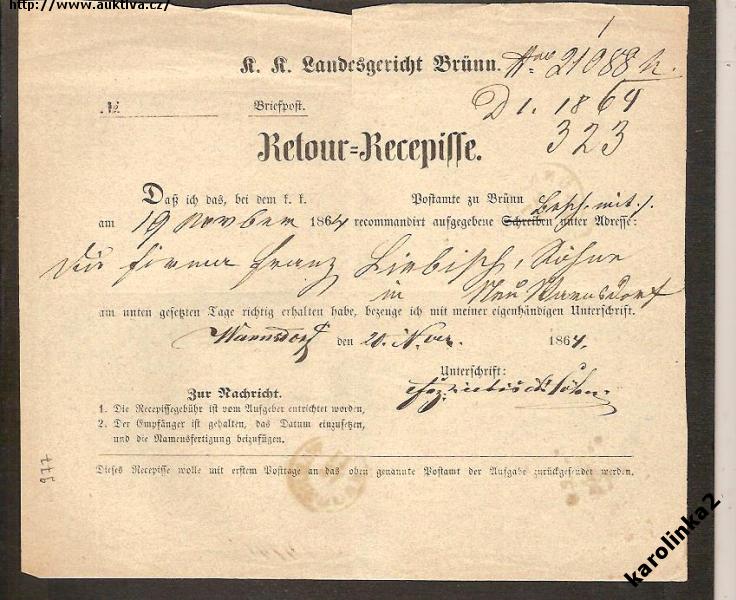 http://www.auktiva.cz/
K. K. Landesgericht Brünn. 21088
№ Briefpost. D 1. 1864
323
Retour=Recepisse.
Daß ich das, bei dem k. k. Postamte zu Brünn Besch. mit
am 19 November 1864 recommandirt aufgegebene Schreiben unter Adresse:
Die Firma Franz Liebisch, Söhne
in Neu Warnsdorf
am unten gesetzten Tage richtig erhalten habe, bezeuge ich mit meiner eigenhändigen Unterschrift.
Warnsdorf den 20. Nov. 1864.
Unterschrift:
Zur Nachricht.
1. Die Recepissegebühr ist vom Aufgeber entrichtet worden,
2. Der Empfänger ist gehalten, das Datum einzusetzen,
und die Namensfertigung beizufügen.
977
Dieses Recepisse wolle mit erstem Posttage an das oben genannte Postamt der Aufgabe zurückgesendet werden.
karolinka2